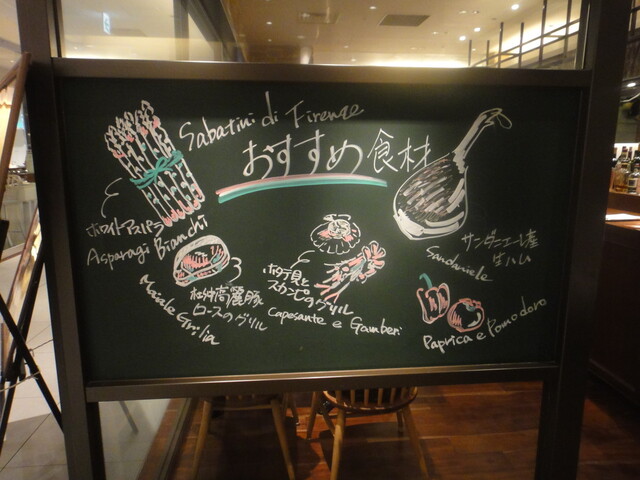 Sabatini di Firenze
おすすめ食材
ホワイトアスパラ
Asparagi Bianchi
サンダニエーレ産
生ハム
Sandaniele
高麗豚
ロースのグリル
Maiale Griglia
ホタテ貝と
スカンピのグリル
Caposante e Gamberi
Paprica e Pomodoro